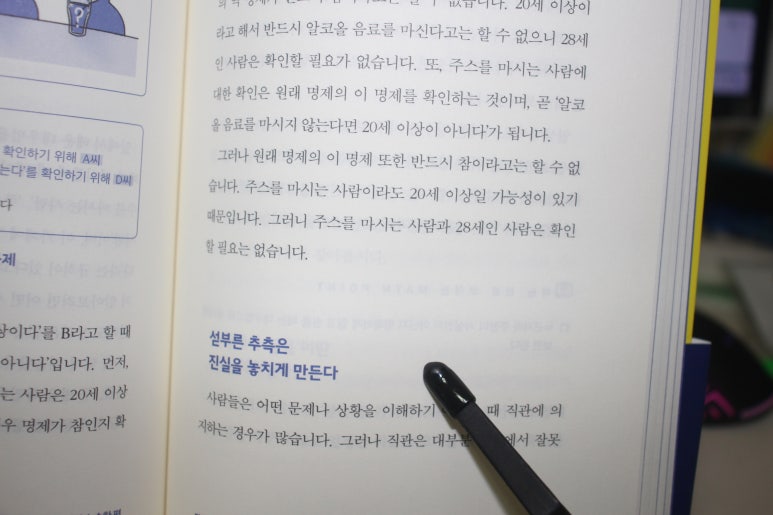 확인하기 위해 A씨
는다'를 확인하기 위해 D씨
다
제
상이다'를 B라고 할 때
아니다'입니다. 먼저,
는 사람은 20세 이상
우 명제가 참인지 확
없습니다. 20세 이상이
라고 해서 반드시 알코올 음료를 마신다고는 할 수 없으니 28세
인 사람은 확인할 필요가 없습니다. 또, 주스를 마시는 사람에
대한 확인은 원래 명제의 이 명제를 확인하는 것이며, 곧 '알코
올 음료를 마시지 않는다면 20세 이상이 아니다'가 됩니다.
그러나 원래 명제의 이 명제 또한 반드시 참이라고는 할 수 없
습니다. 주스를 마시는 사람이라도 20세 이상일 가능성이 있기
때문입니다. 그러니 주스를 마시는 사람과 28세인 사람은 확인
할 필요는 없습니다.
섣부른 추측은
진실을 놓치게 만든다
사람들은 어떤 문제나 상황을 이해하기 때 직관에 의
지하는 경우가 많습니다. 그러나 직관은 대부분 에서 잘못